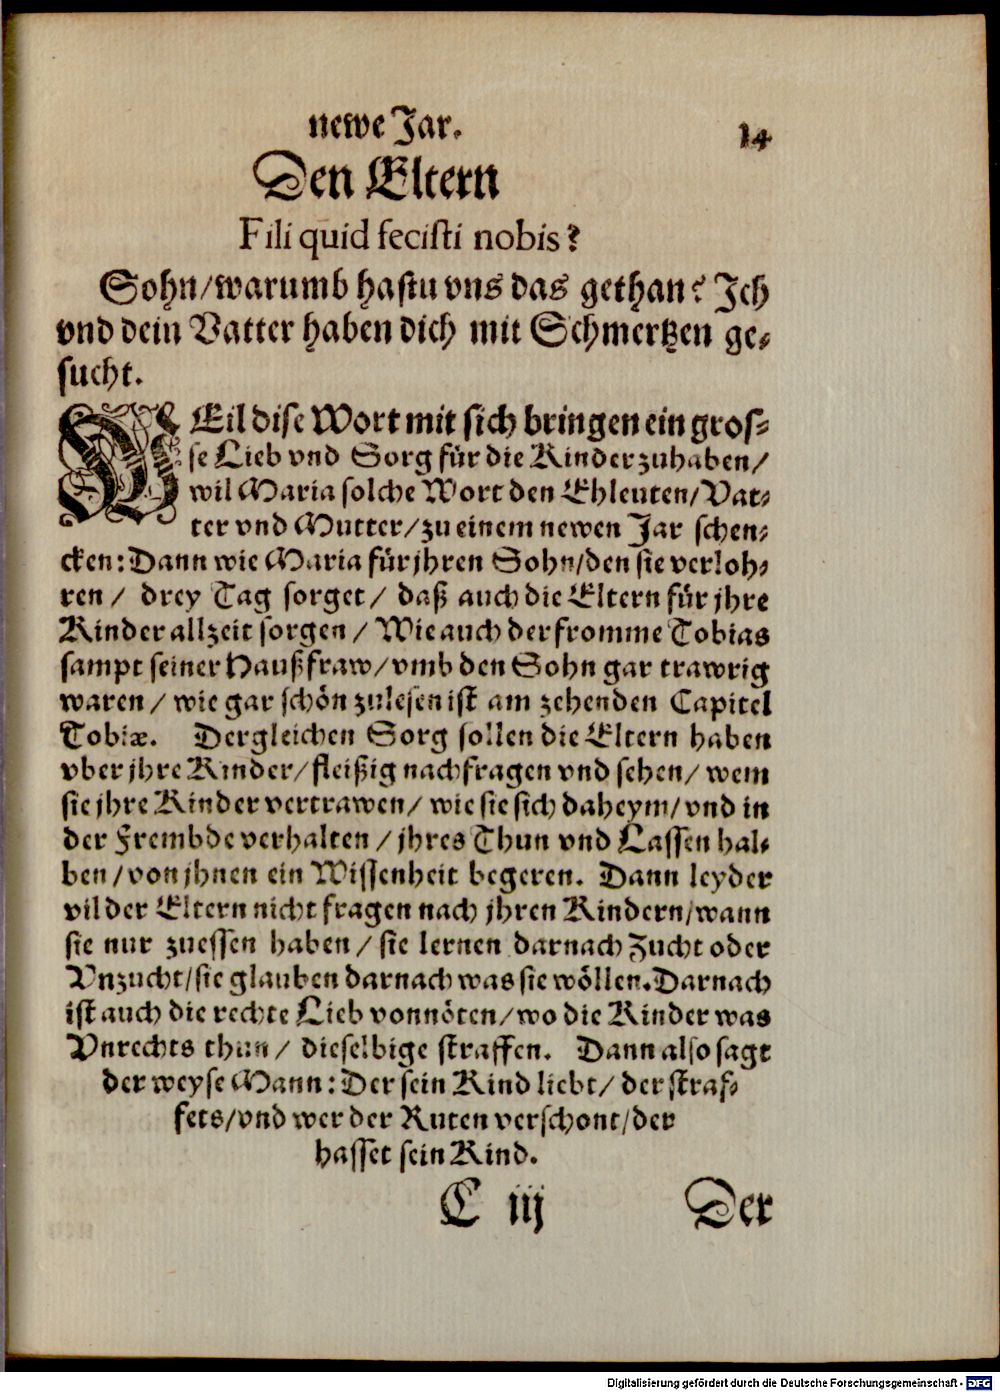 newe Jar. 14
Den Eltern
Fili quid fecisti nobis?
Sohn/warumb hastu vns das gethan? Ich
vnd dein Vatter haben dich mit Schmertzen ge-
sucht.
WEil dise Wort mit sich bringen ein gros-
se Lieb vnd Sorg für die Kinder zuhaben/
wil Maria solche Wort den Ehleuten/Vat-
ter vnd Mutter/zu einem newen Jar schen-
cken: Dann wie Maria für jhren Sohn/den sie verloh-
ren/ drey Tag sorget/ daß auch die Eltern für jhre
Kinder allzeit sorgen/ Wie auch der fromme Tobias
sampt seiner Haußfraw/vmb den Sohn gar trawrig
waren/ wie gar schön zulesen ist am zehenden Capitel
Tobiæ. Dergleichen Sorg sollen die Eltern haben
vber jhre Kinder/ fleißig nachfragen vnd sehen/ wem
sie jhre Kinder vertrawen/ wie sie sich daheym/vnd in
der Frembde verhalten/ jhres Thun vnd Lassen hal-
ben/von jhnen ein Wissenheit begeren. Dann leyder
vil der Eltern nicht fragen nach jhren Kindern/wann
sie nur zuessen haben/ sie lernen darnach Zucht oder
Vnzucht/sie glauben darnach was sie wöllen. Darnach
ist auch die rechte Lieb vonnöten/wo die Kinder was
Vnrechts thun/ dieselbige straffen. Dann also sagt
der weyse Mann: Der sein Kind liebt/ der straf-
fets/vnd wer der Ruten verschont/der
hasset sein Kind.
C iij Der
Digitalisierung gefördert durch die Deutsche Forschungsgemeinschaft - DFG